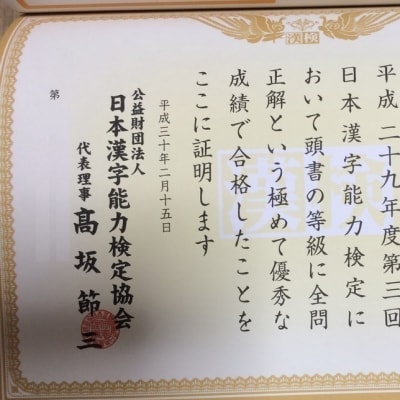 漢検
平成二十九年度第三回
日本漢字能力検定に
おいて頭書の等級に全問
正解という極めて優秀な
成績で合格したことを
ここに証明します
平成三十年二月十五日
公益財団法人
日本漢字能力検定協会
代表理事 髙坂節三
第